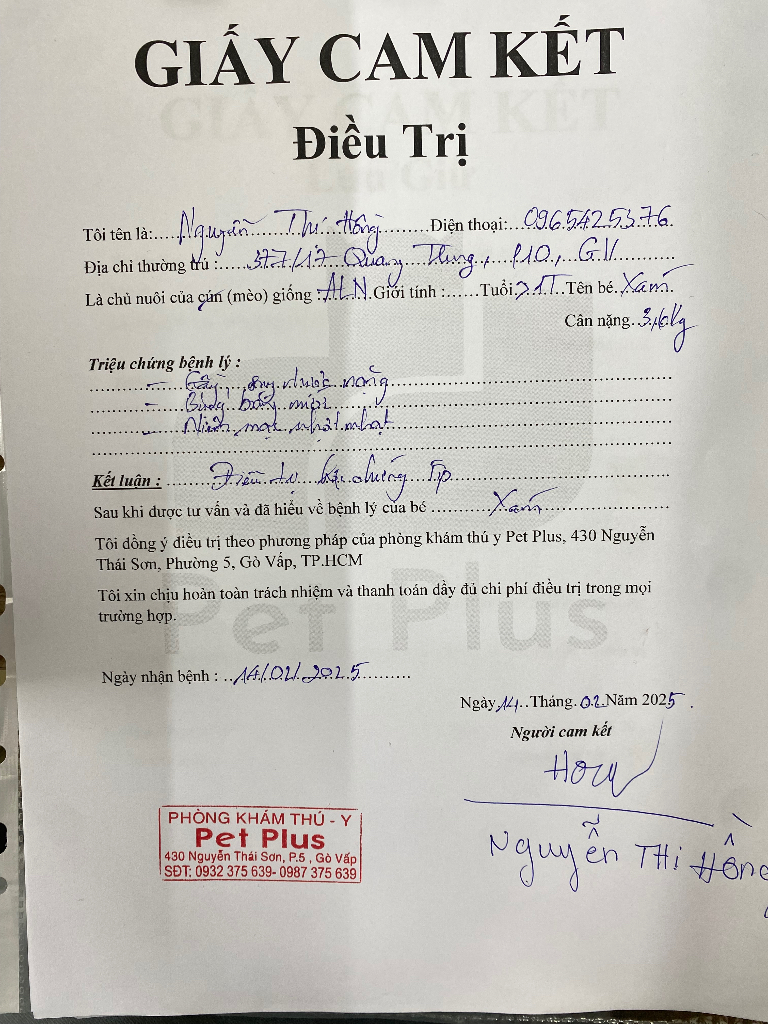 GIẤY CAM KẾT
Điều Trị
Tôi tên là:....Nguyễn Thị Hồng........Điện thoại:..0965425376.
Địa chỉ thường trú :....377/17 Quang Trung, P10, GV............
Là chủ nuôi của cún (mèo) giống :ALN.Giới tính :......Tuổi >1T..Tên bé.Xám.
Cân nặng. 3,6kg
Triệu chứng bệnh lý :
- Gầy, ăn được
-
- Niêm mạc nhợt nhạt
Kết luận : .......Điều trị
Sau khi được tư vấn và đã hiểu về bệnh lý của bé ..........Xám....................
Tôi đồng ý điều trị theo phương pháp của phòng khám thú y Pet Plus, 430 Nguyễn
Thái Sơn, Phường 5, Gò Vấp, TP.HCM
Tôi xin chịu hoàn toàn trách nhiệm và thanh toán đầy đủ chi phí điều trị trong mọi
trường hợp.
Pet Plus
Ngày nhận bệnh : ..14/02/2025..........
Ngày 14..Tháng. 02.Năm 2025 .
Người cam kết
Nguyễn Thị Hồng
PHÒNG KHÁM THÚ - Y
Pet Plus
430 Nguyễn Thái Sơn, P.5 , Gò Vấp
SĐT: 0932 375 639- 0987 375 639